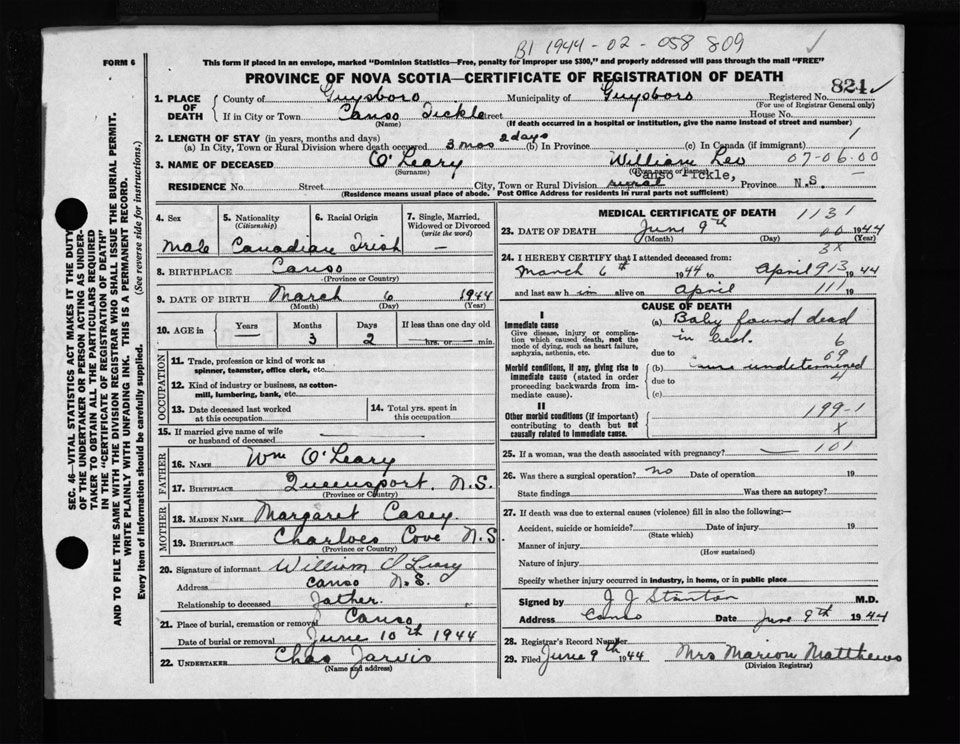 B1 1944-02-058 809
FORM 6
This form if placed in an envelope, marked "Dominion Statistics—Free, penalty for improper use $300," and properly addressed will pass through the mail "FREE"
PROVINCE OF NOVA SCOTIA—CERTIFICATE OF REGISTRATION OF DEATH
821
1. PLACE OF DEATH
County of Guysboro Municipality of Guysboro Registered No.
(For use of Registrar General only)
If in City or Town Canso Tickle Street House No.
(Name) (If death occurred in a hospital or institution, give the name instead of street and number)
2. LENGTH OF STAY (in years, months and days)
(a) In City, Town or Rural Division where death occurred 3 mos 2 days (b) In Province (c) In Canada (if immigrant) 1
3. NAME OF DECEASED O'Leary William Leo 07-06-00
(Surname) (Given name or names)
Canso Tickle,
RESIDENCE No. Street City, Town or Rural Division rural Province N.S. —
(Residence means usual place of abode. Post Office Address for residents in rural parts not sufficient)
4. Sex
Male
5. Nationality
(Citizenship)
Canadian
6. Racial Origin
Irish
7. Single, Married, Widowed or Divorced
(write the word)
—
8. BIRTHPLACE Canso
(Province or Country)
9. DATE OF BIRTH March 6 1944
(Month) (Day) (Year)
10. AGE in
Years Months Days If less than one day old
— 3 2 — hrs. or — min.
OCCUPATION
11. Trade, profession or kind of work as spinner, teamster, office clerk, etc.
12. Kind of industry or business, as cotton-mill, lumbering, bank, etc.
13. Date deceased last worked at this occupation
14. Total yrs. spent in this occupation
15. If married give name of wife or husband of deceased —
FATHER
16. NAME Wm O'Leary
17. BIRTHPLACE Queensport. N.S.
(Province or Country)
MOTHER
18. MAIDEN NAME Margaret Casey.
19. BIRTHPLACE Charloes Cove N.S.
(Province or Country)
20. Signature of informant William O'Leary
Address Canso N.S.
Relationship to deceased Father.
21. Place of burial, cremation or removal Canso
Date of burial or removal June 10th 1944
22. UNDERTAKER Chas Jarvis
(Name and address)
MEDICAL CERTIFICATE OF DEATH 1131
23. DATE OF DEATH June 9th 00 1944
(Month) (Day) (Year)
3x
24. I HEREBY CERTIFY that I attended deceased from:
March 6th 1944 to April 913 1944
and last saw h im alive on April 111 19
CAUSE OF DEATH
I
Immediate cause
Give disease, injury or complication which caused death, not the mode of dying, such as heart failure, asphyxia, asthenia, etc.
(a) Baby found dead
in bed. 6
due to 69
Morbid conditions, if any, giving rise to immediate cause (stated in order proceeding backwards from immediate cause).
(b) Cause undetermined
due to 4
(c)
II
Other morbid conditions (if important) contributing to death but not causally related to immediate cause.
199-1
X
25. If a woman, was the death associated with pregnancy? — 101
26. Was there a surgical operation? no Date of operation 19
State findings Was there an autopsy?
27. If death was due to external causes (violence) fill in also the following:—
Accident, suicide or homicide? Date of injury 19
(State which)
Manner of injury
(How sustained)
Nature of injury
Specify whether injury occurred in industry, in home, or in public place
Signed by J J Stanton M.D.
Address Canso Date June 9th 1944
28. Registrar's Record Number
29. Filed June 9th 1944 Mrs Marion Matthews
(Division Registrar)
SEC. 46—VITAL STATISTICS ACT MAKES IT THE DUTY
OF THE UNDERTAKER OR PERSON ACTING AS UNDER-
TAKER TO OBTAIN ALL THE PARTICULARS REQUIRED
IN THE "CERTIFICATE OF REGISTRATION OF DEATH"
AND TO FILE THE SAME WITH THE DIVISION REGISTRAR WHO SHALL ISSUE THE BURIAL PERMIT.
WRITE PLAINLY WITH UNFADING INK. THIS IS A PERMANENT RECORD.
Every item of information should be carefully supplied. (See reverse side for instructions.)